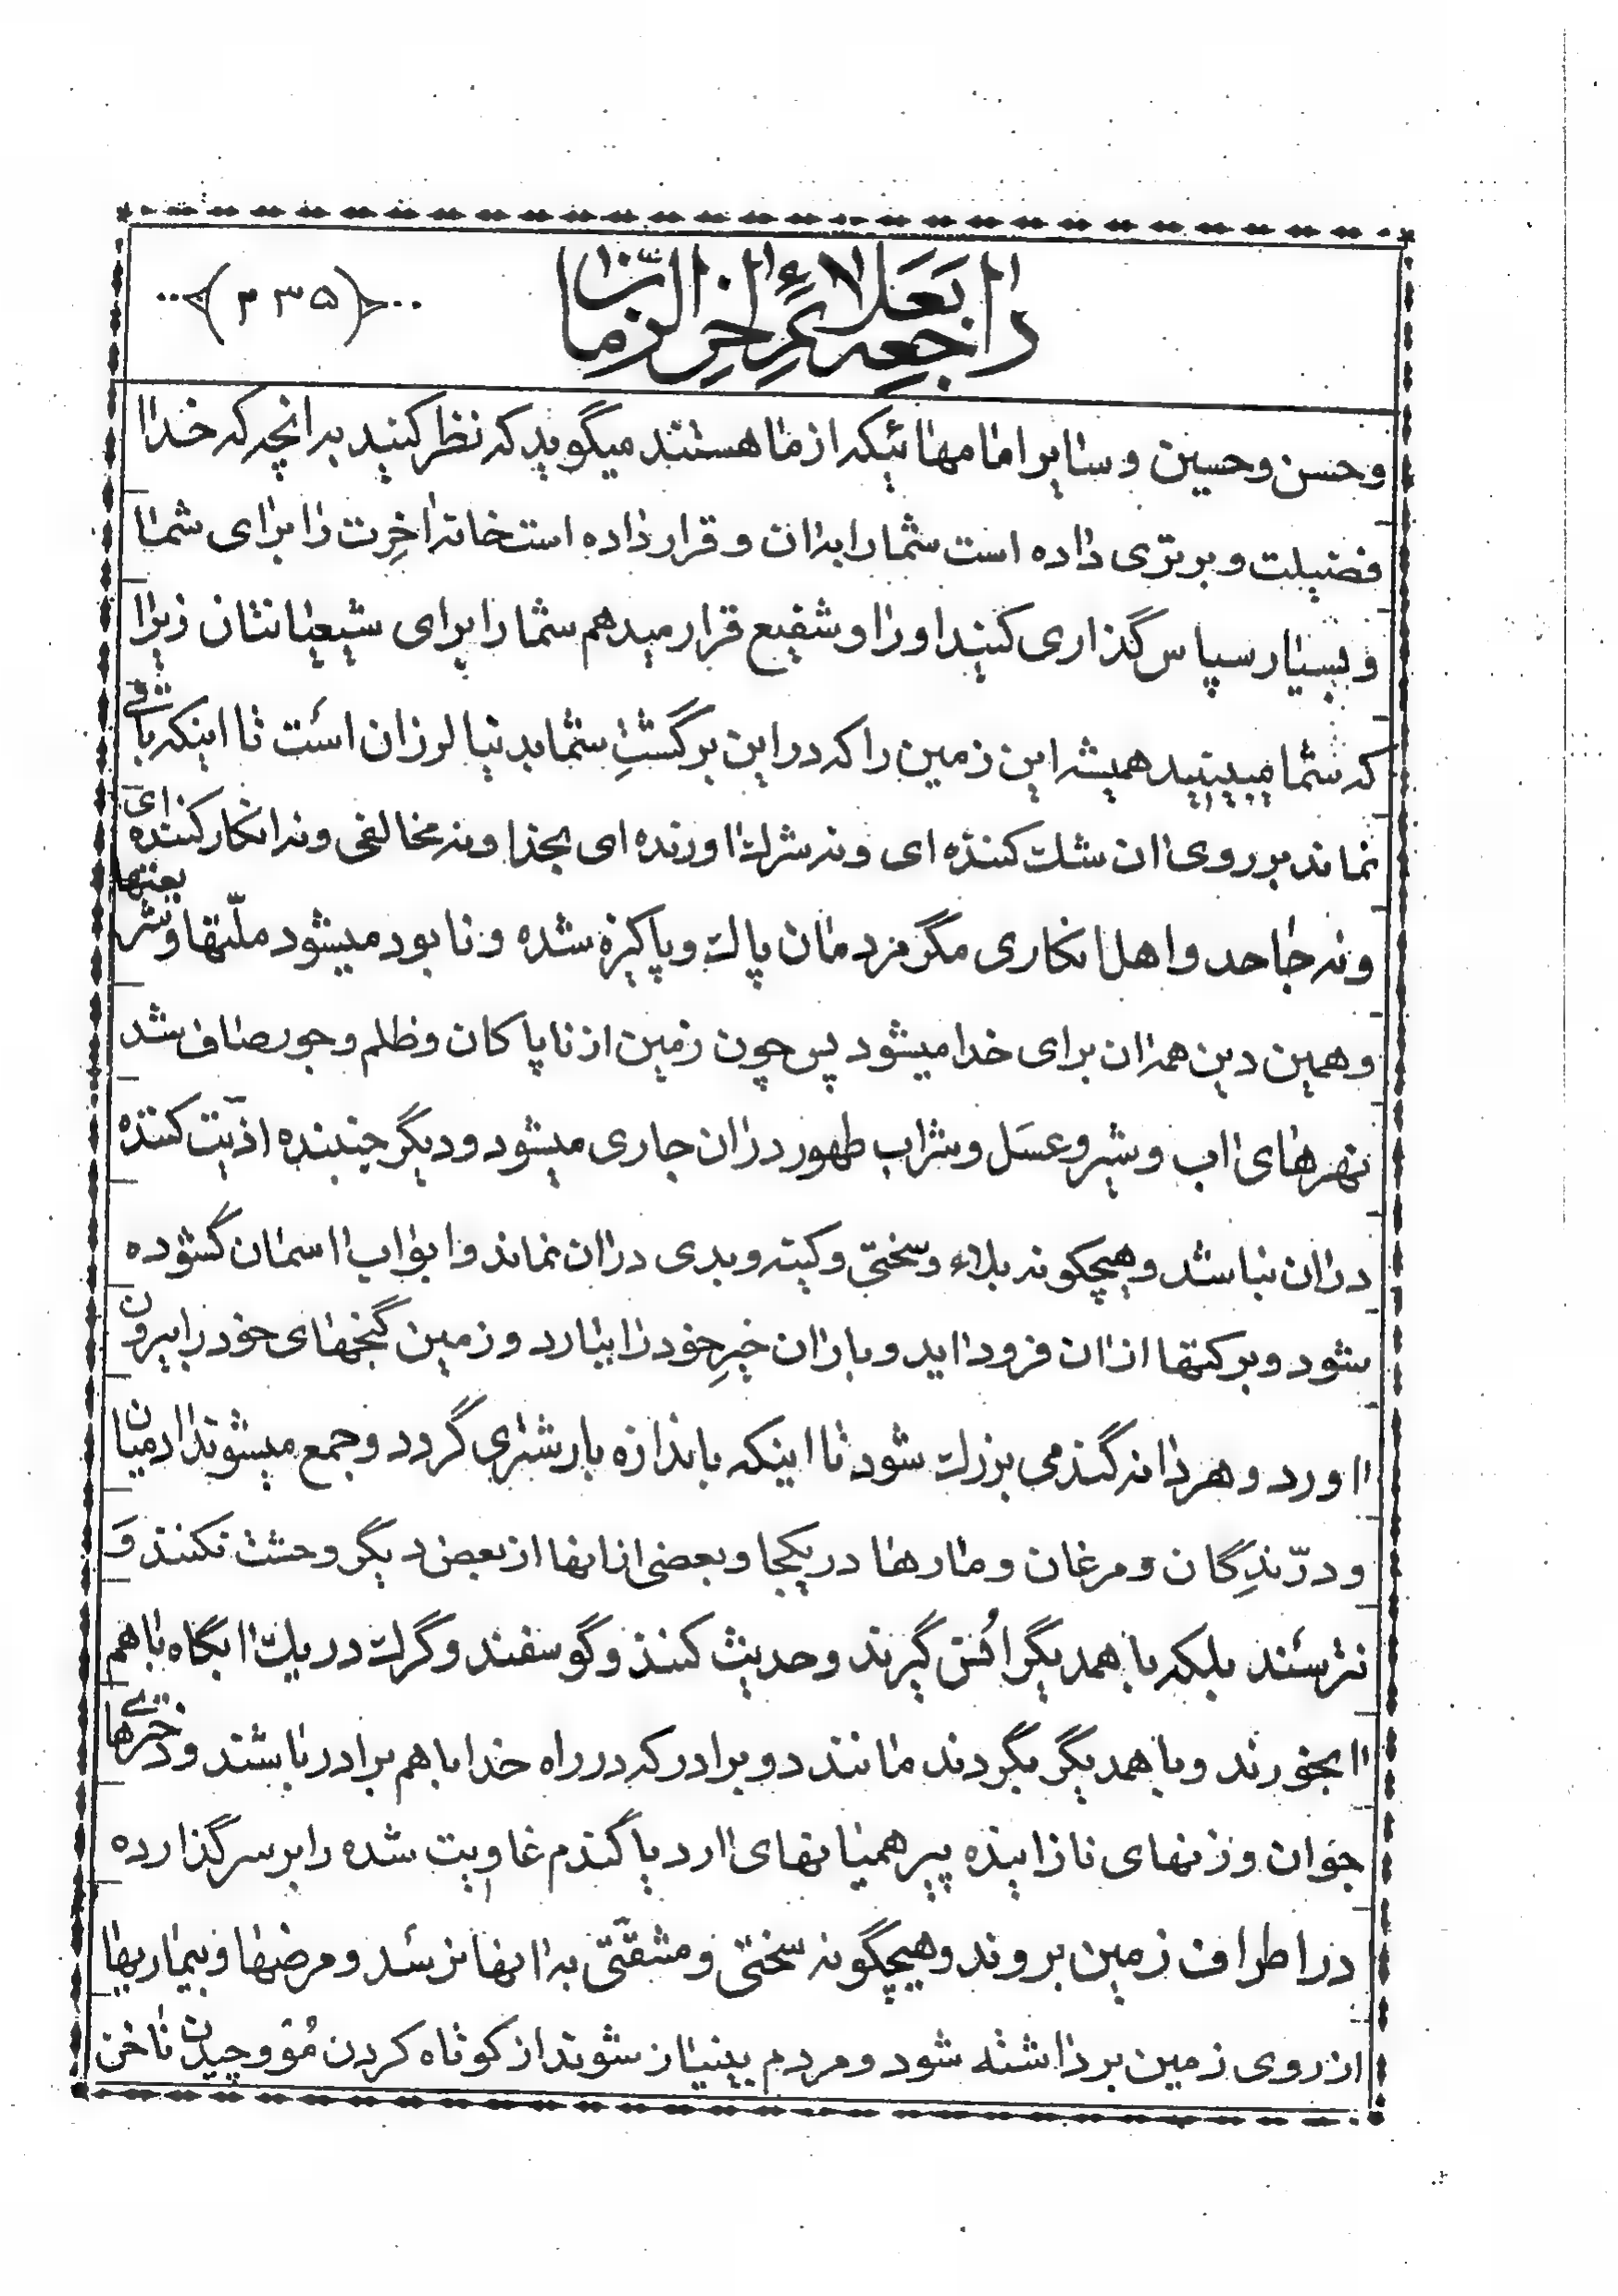 راجعه بعلائم اخر الزمان
(۲۳۵)
وحسن وحسین وسایر امامهائیکه از ما هستند میگوید که نظر کنید به انچه که خدا
فضیلت و برتری داده است شما را به ان و قرار داده است خانه اخرت را برای شما
و بسیار سپاس گذاری کنید او را و شفیع قرار میدهم شما را برای شیعیانتان زیرا
که شما میبینید همیشه این زمین را که در این برگشت شما بدنیا لرزان است تا اینکه باقی
نماند بر روی ان شک کننده ای و نه شرک اورنده ای بخدا و نه مخالفی و نه انکار کننده ای
و نه جاحد و اهل انکاری مگر مردمان پاک و پاکیزه شده و نابود میشود ملّتها و شریعتها
و همین دین همه ان برای خدا میشود پس چون زمین از ناپاکان و ظلم و جور صاف شد
نهرهای اب و شیر و عسَل و شراب طهور در ان جاری میشود و دیگر جنبنده اذیّت کننده
در ان نباشد و هیچگونه بلاء و سختی و کینه و بدی در ان نماند و ابواب اسمان گشوده
شود و برکتها از ان فرود اید و باران خیرِ خود را ببارد و زمین گنجهای خود را بیرون
اورد و هر دانه گندمی بزرگ شود تا اینکه باندازه بار شتری گردد و جمع میشوند ادمیان
و درّندگان و مرغان و مارها در یکجا و بعضی از انها از بعض دیگر وحشت نکنند وَ
نترسند بلکه با همدیگر اُنس گیرند و حدیث کنند و گوسفند و گرگ در یک ابگاه با هم
اب بخورند و با همدیگر بگردند مانند دو برادر که در راه خدا با هم برادر باشند و دخترهای
جوان و زنهای نازاینده پیر همیانهای ارد یا گندم غاویت شده را بر سر گذارده
در اطراف زمین بروند و هیچگونه سختی و مشقّتی به انها نرسد و مرضها و بیماریها
از روی زمین برداشته شود و مردم بینیاز شوند از کوتاه کردن مُو و چیدن ناخن